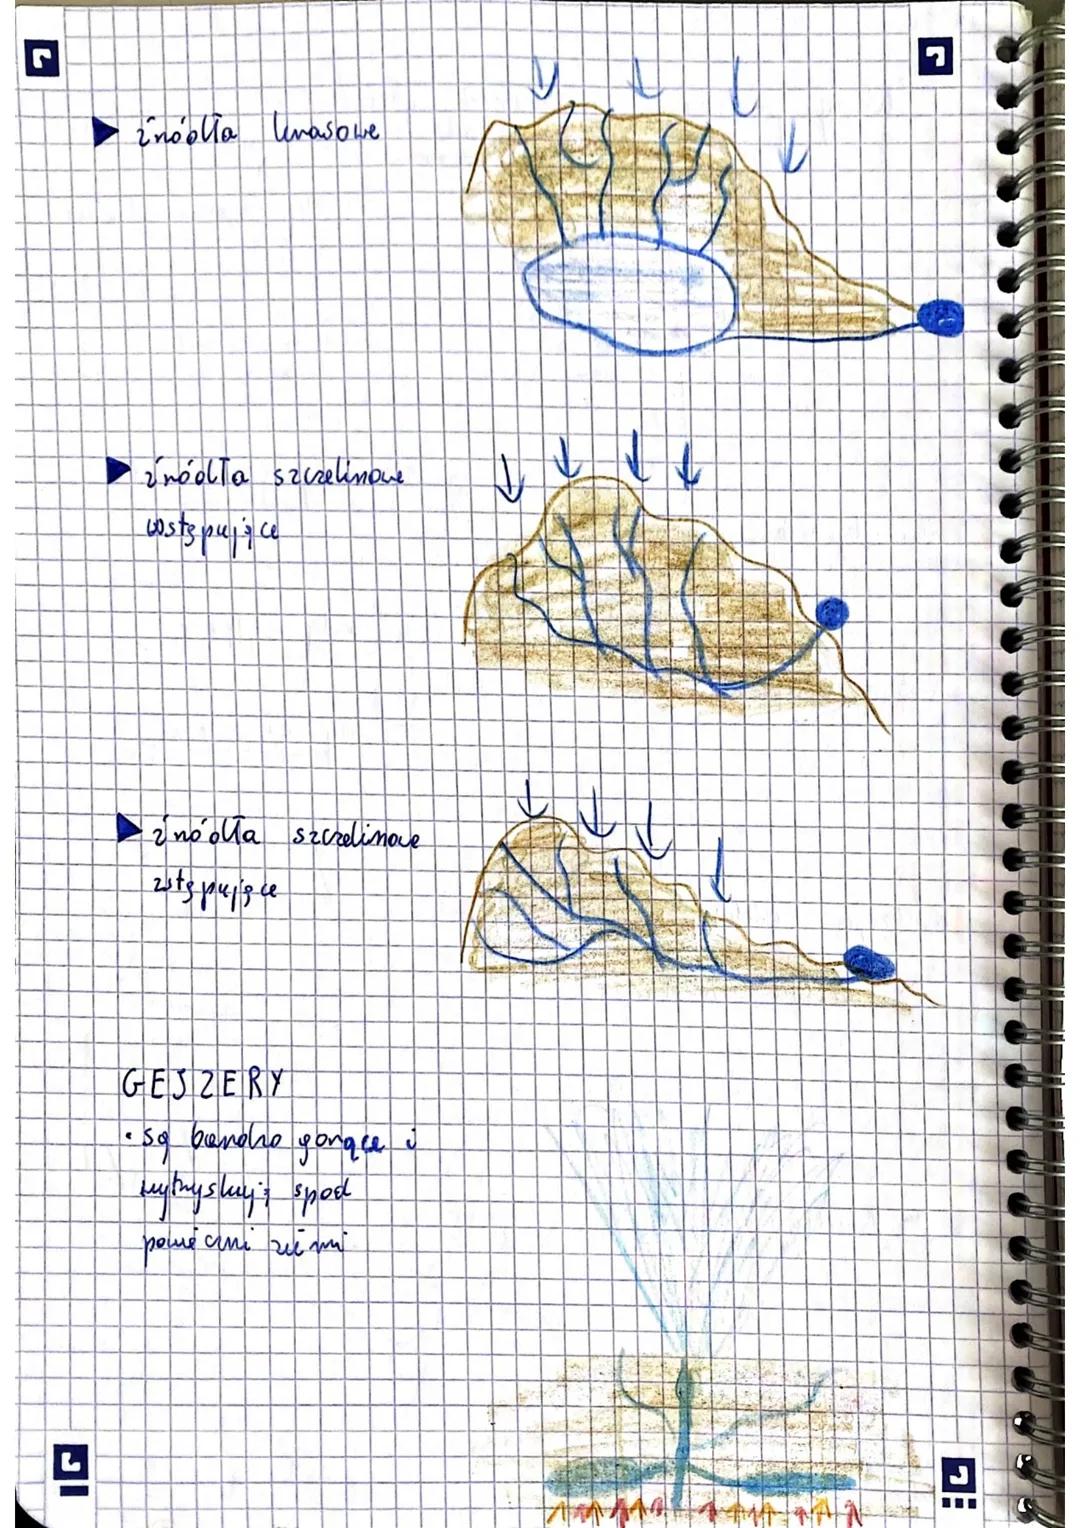 źródła krasowe
źródła szczelinowe
wstępujące
źródła szczelinowe
zstępujące
GEJZERY
• są bardzo gorące i
wytryskują spod
powierzchni ziemi